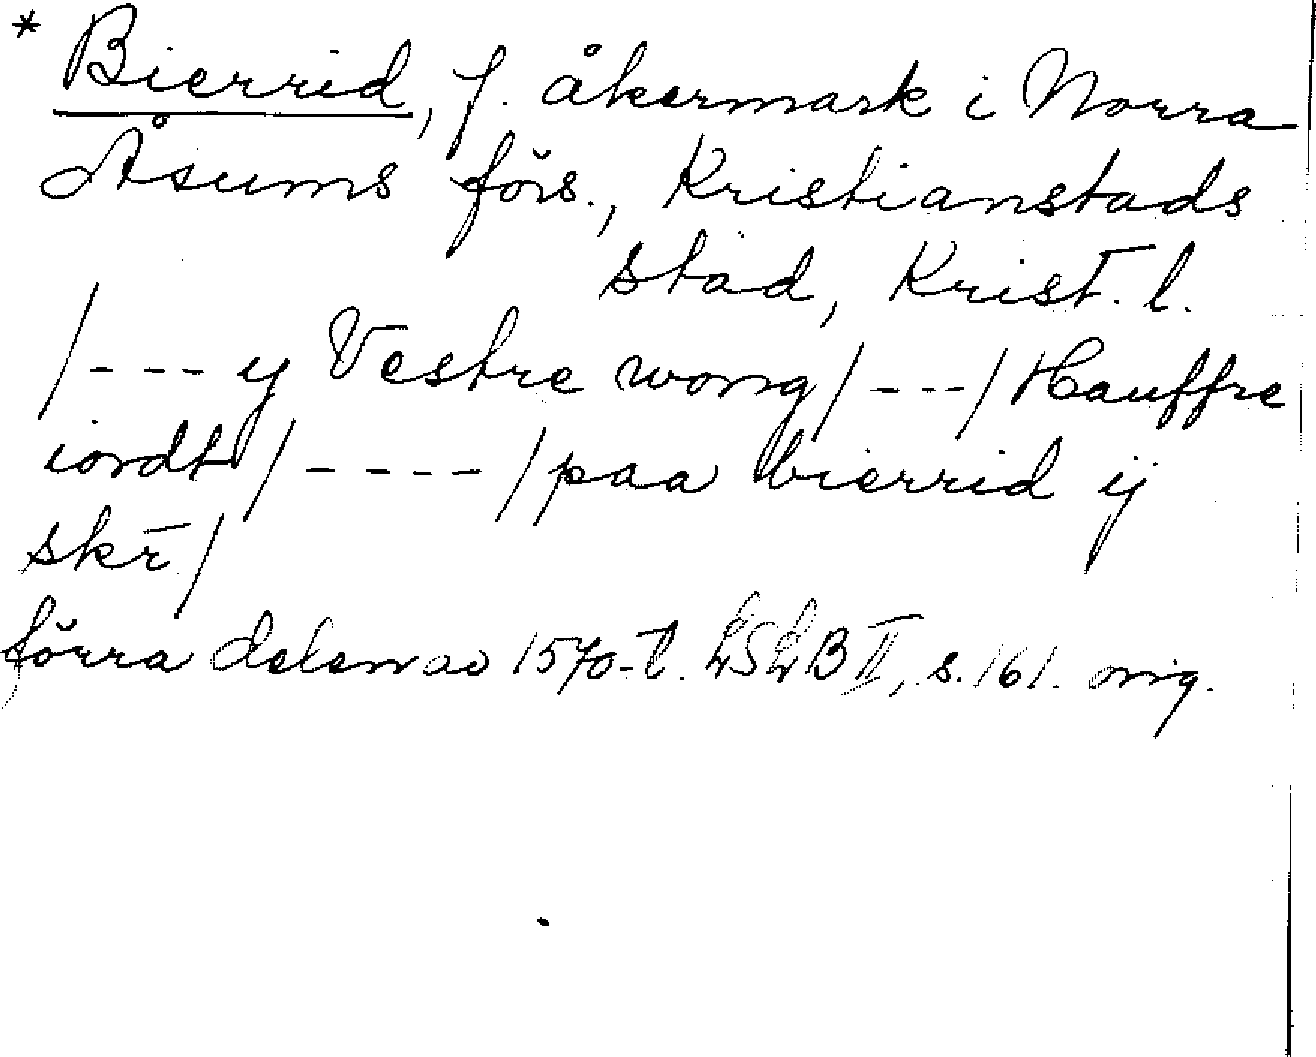 * Bierrid, f. åkermark i Norra
Åsums förs., Kristianstads
stad, Krist. l.
/---y Vestre wong/---/Hauffre
iordt/----/paa bierrid ij
skr̄/
förra delen av 1570-t. LSLB II, s. 161. orig.